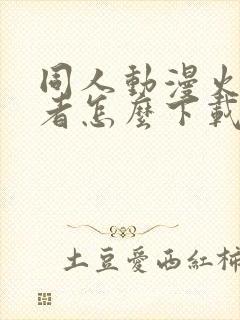 同人動漫火
者怎麼下載
土豆愛西紅柿